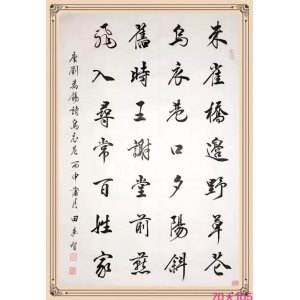 朱雀橋邊野草花
烏衣巷口夕陽斜
舊時王謝堂前燕
飛入尋常百姓家
唐劉禹錫詩烏衣巷丙申蒲月田
70*105